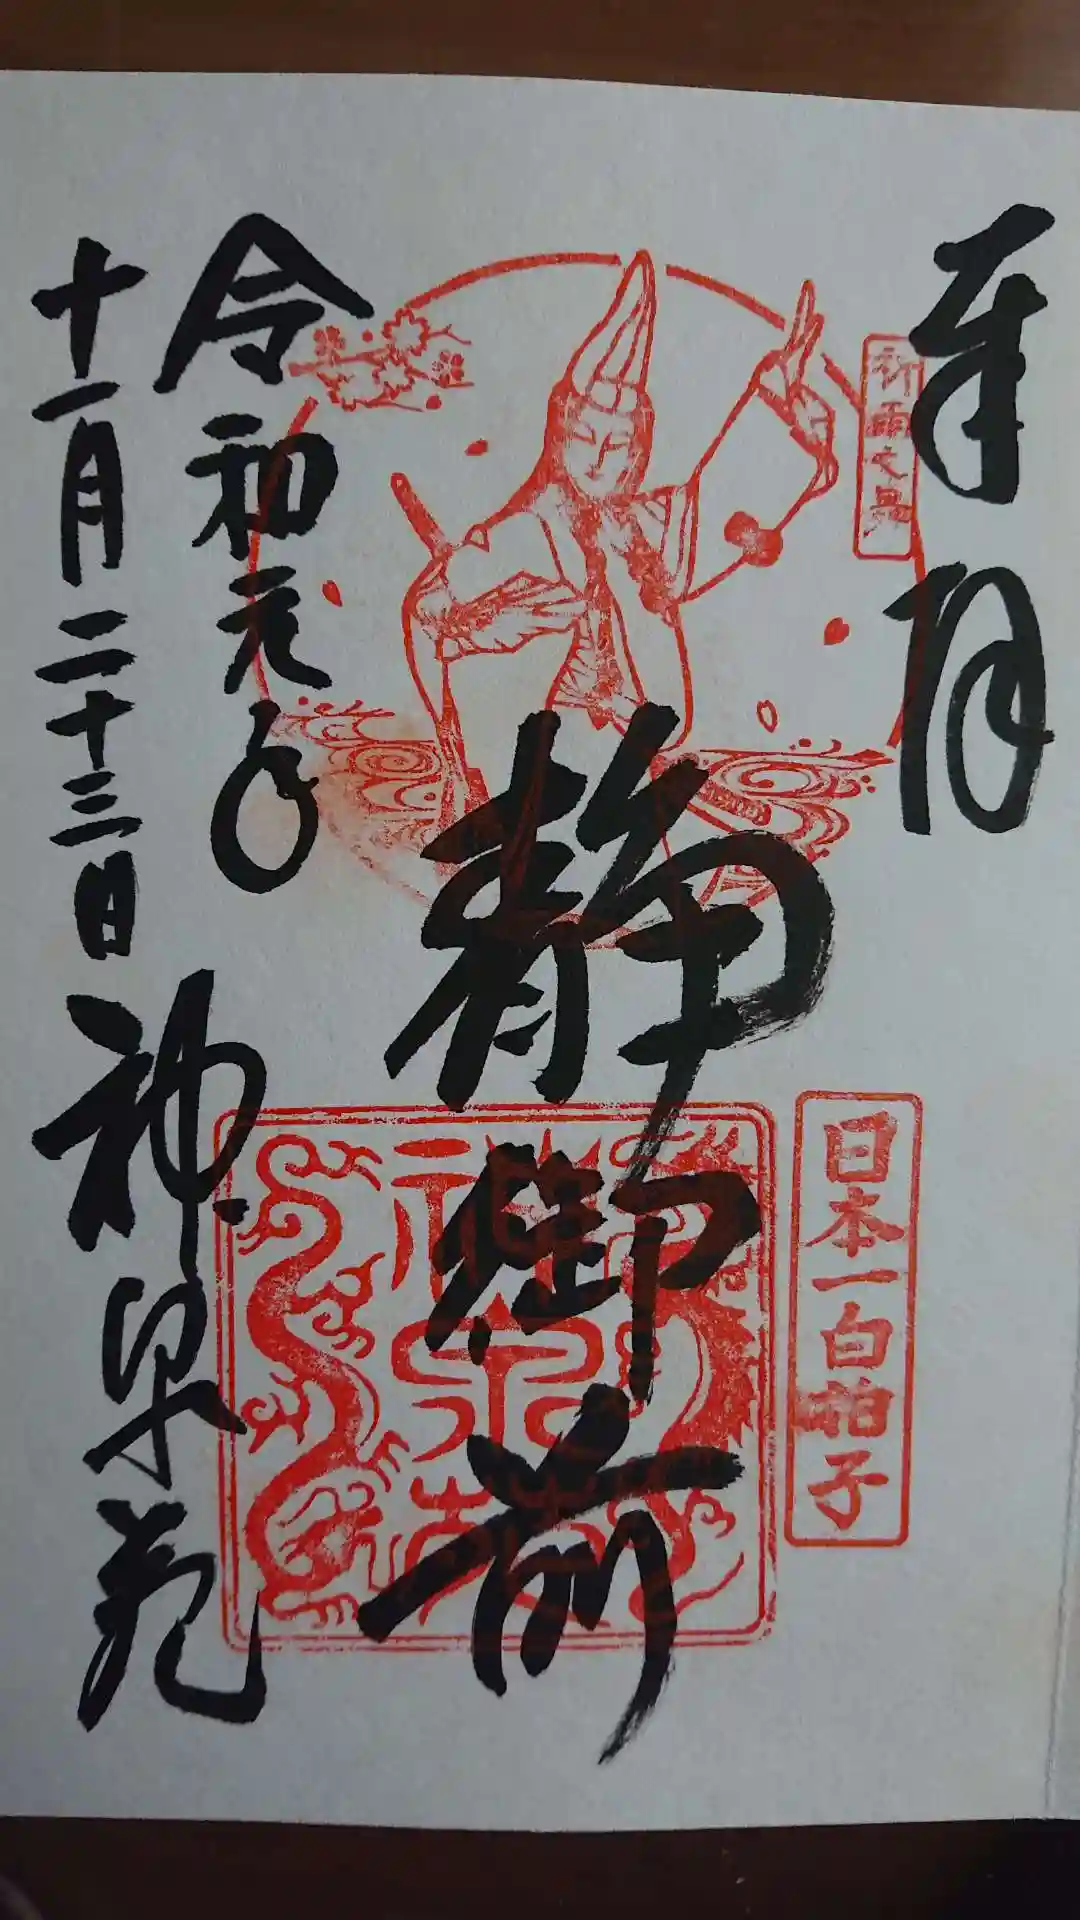 奉拝
祈雨之舞
静御前
日本一白拍子
令和元年
十一月二十三日
神泉苑
神泉苑